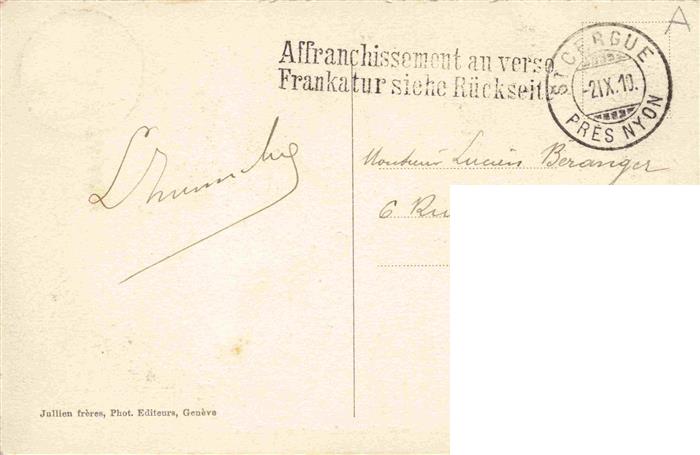 A
Affranchissement au verso
Frankatur siehe Rückseit
ST CERGUE
-2.IX.10.
PRÈS NYON
Monsieur Lucien Béranger
6 Ru
Jullien frères, Phot. Editeurs, Genève